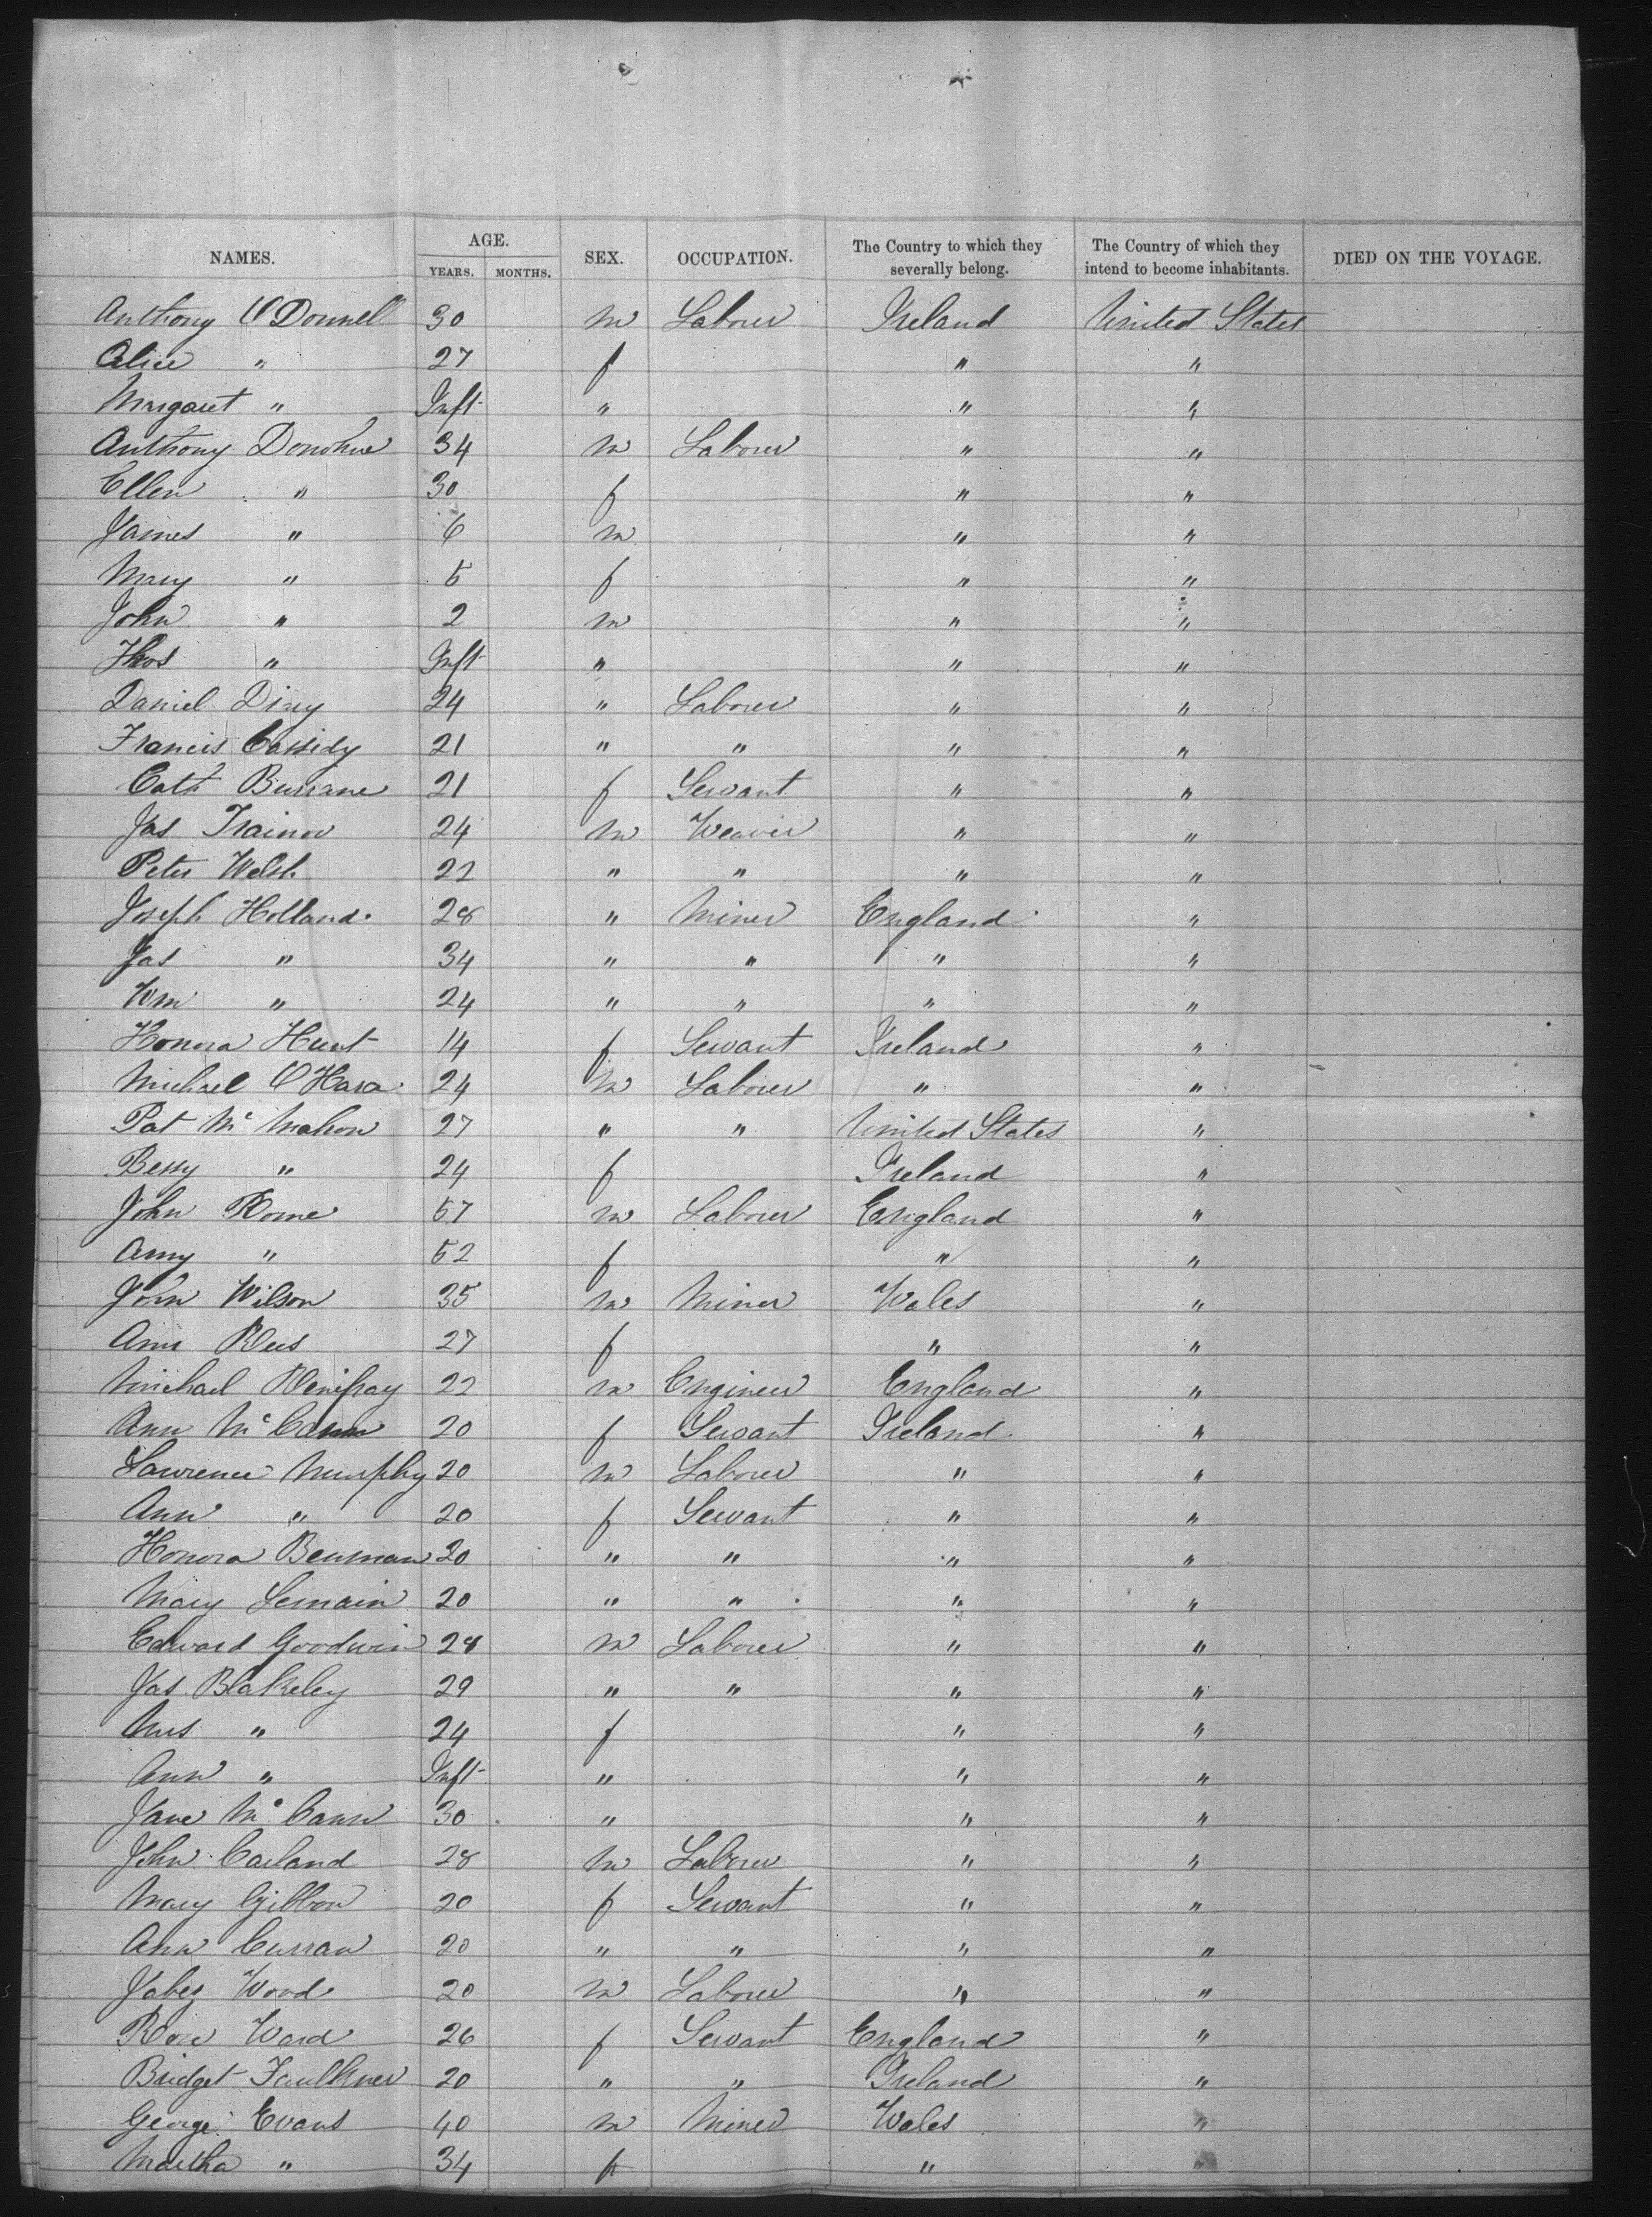 NAMES. AGE. SEX. OCCUPATION. The Country to which they severally belong. The Country of which they intend to become inhabitants. DIED ON THE VOYAGE.
YEARS. MONTHS.
Anthony O'Donnell 30 m Laborer Ireland United States
Alice " 27 f " "
Margaret " Inft " " "
Anthony Donohue 34 m Laborer " "
Ellen " 30 f " "
James " 6 m " "
Mary " 5 f " "
John " 2 m " "
Thos " Inft " " "
Daniel 24 " Laborer " "
Francis Cassidy 21 " " " "
Cath 21 f Servant " "
Jas Trainor 24 m Weaver " "
Peter Welsh 22 " " " "
Joseph Holland 28 " Miner England "
Jas " 34 " " " "
Wm " 24 " " " "
Honora Hunt 14 f Servant Ireland "
Michael O'Hara 24 m Laborer " "
Pat Mc Mahon 27 " " United States "
Bessy " 24 f Ireland "
John Rome 57 m Laborer England "
Amy " 52 f " "
John Wilson 35 m Miner Wales "
Ann Rees 27 f " "
Michael 22 m Engineer England "
Ann Mc Cann 20 f Servant Ireland "
Lawrence Murphy 20 m Laborer " "
Ann " 20 f Servant " "
Honora 20 " " " "
Mary 20 " " " "
Edward Goodwin 28 m Laborer " "
Jas Blakeley 29 " " " "
Mrs " 24 f " "
Ann " Inft " " "
Jane Mc Cann 30 " " "
John Carland 28 m Laborer " "
Mary Gibbon 20 f Servant " "
Ann Curran 20 " " " "
Jabez Wood 20 m Laborer " "
Rose Ward 26 f Servant England "
Bridget Faulkner 20 " " Ireland "
George Evans 40 m Miner Wales "
Martha " 34 f " "